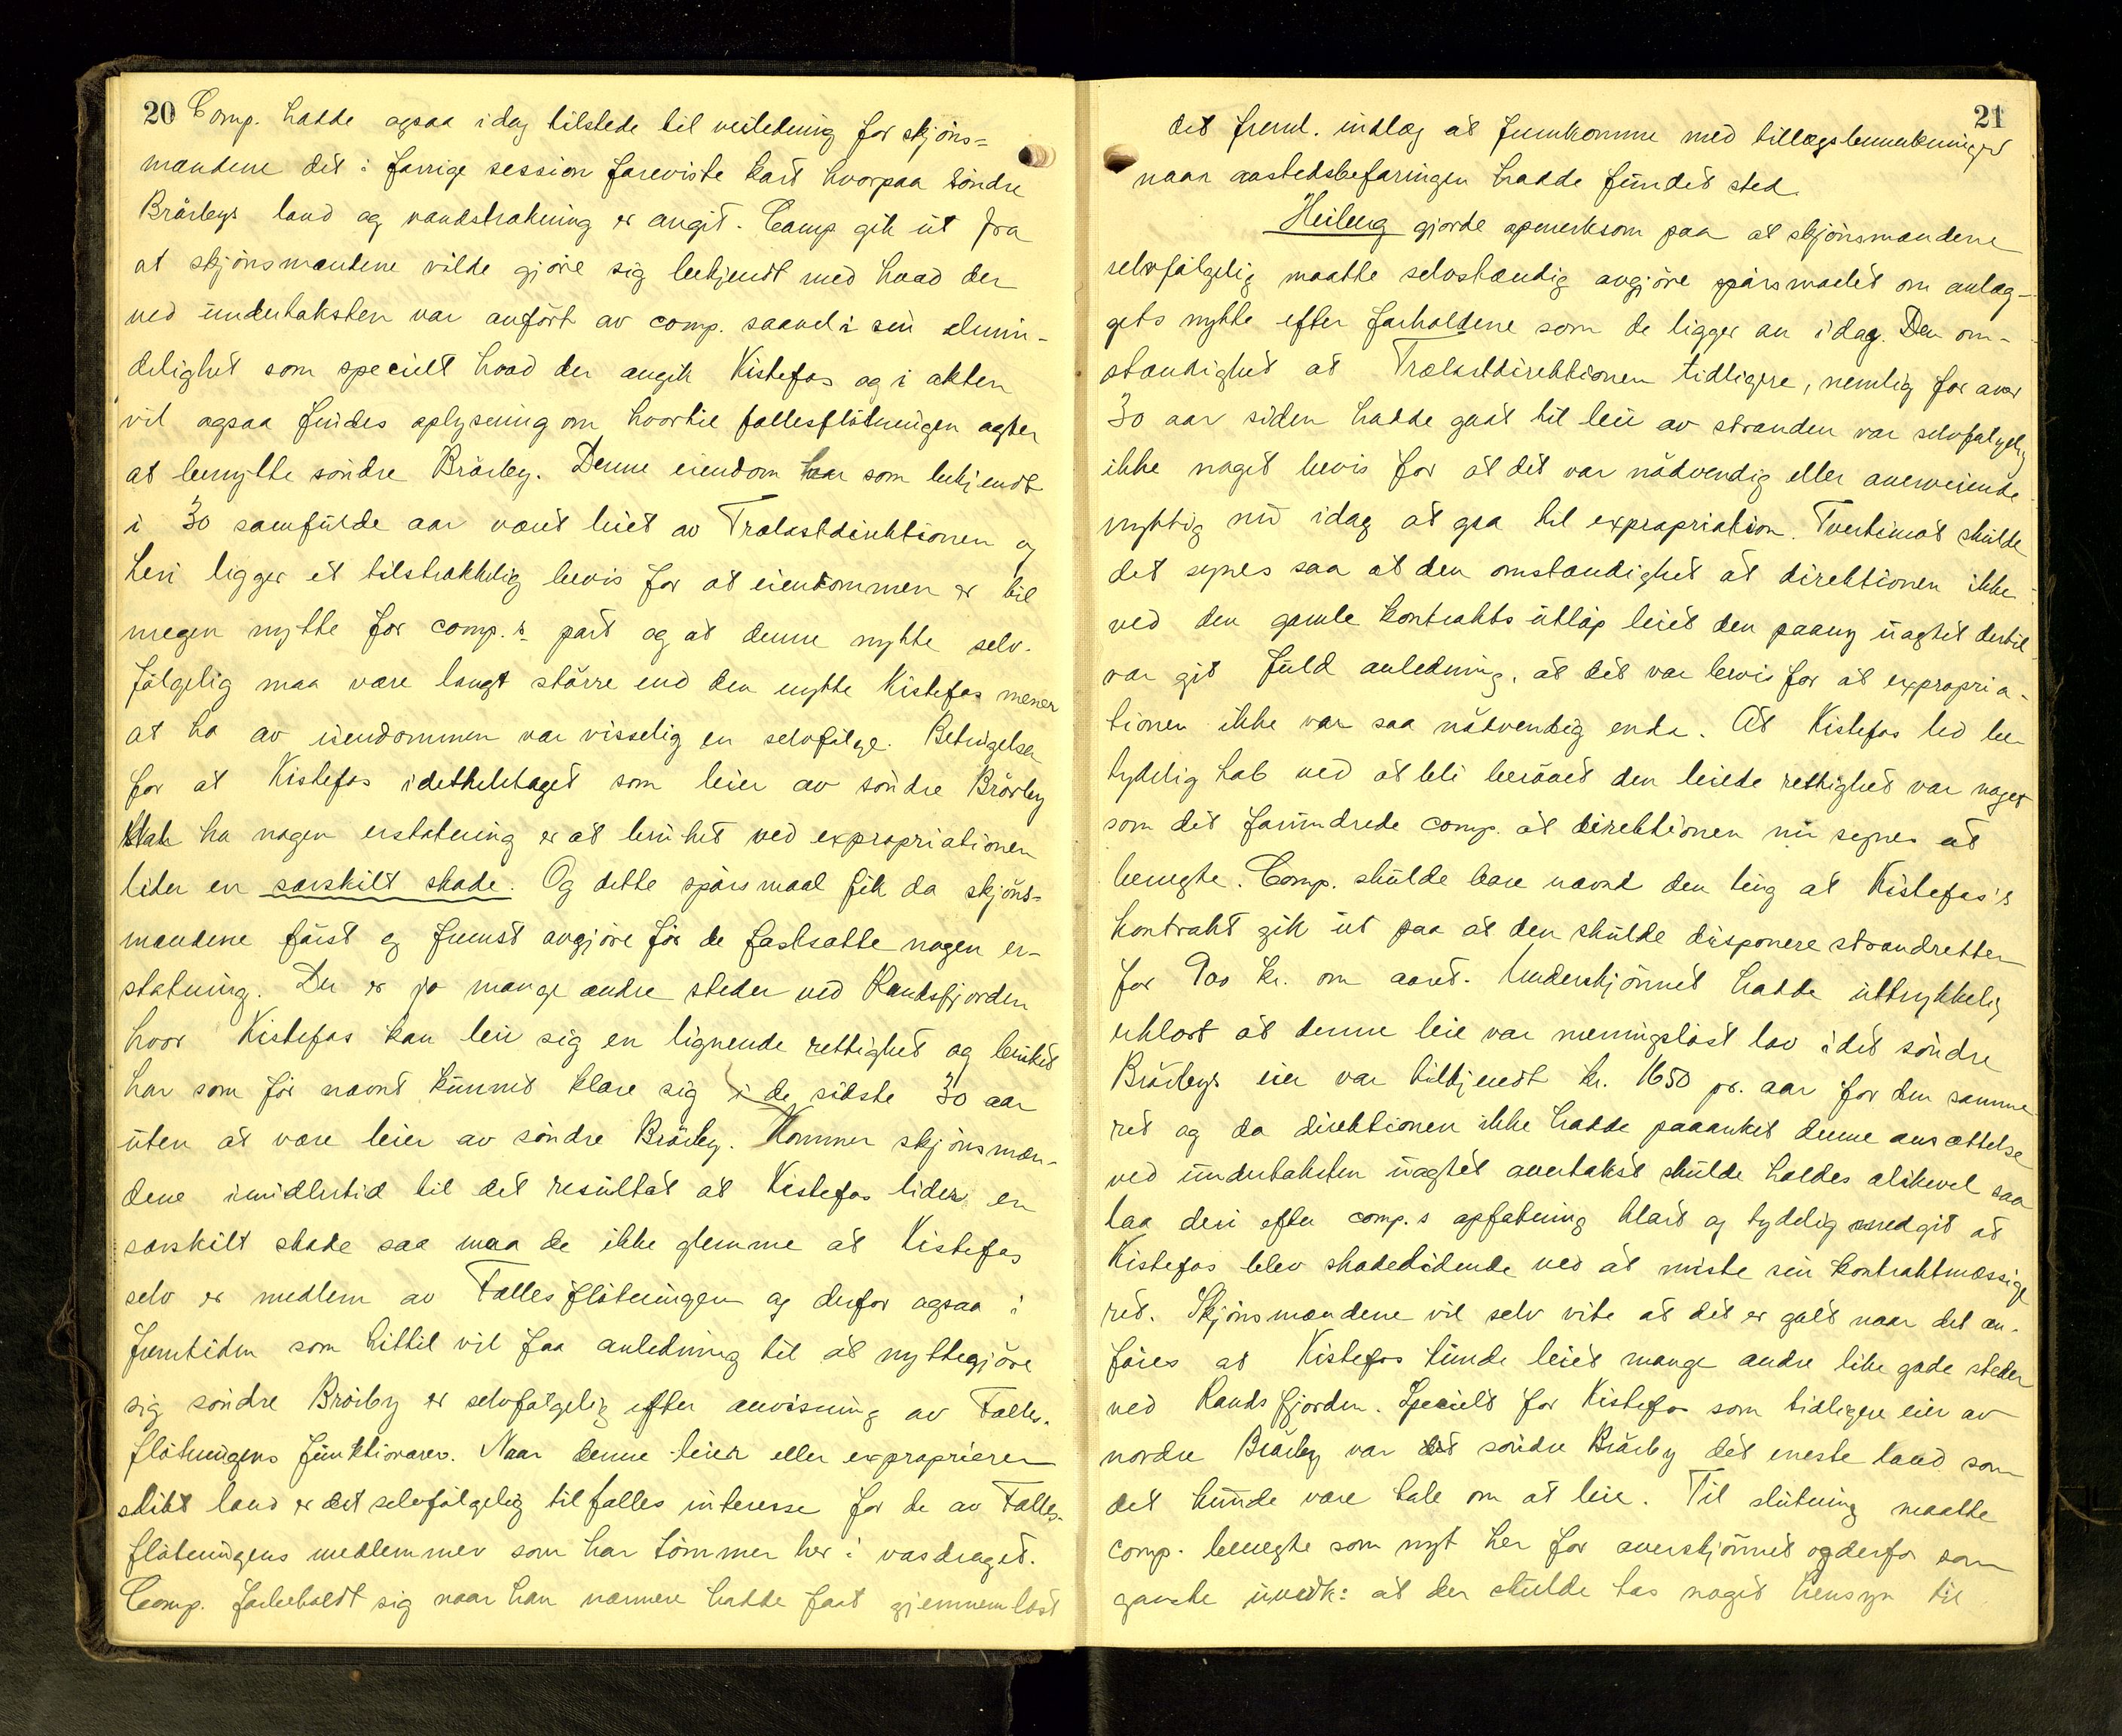 20 Comp. hadde ogsaa idag tilstede til veiledning for skjöns=
mændene det i forrige session foreviste kart hvorpaa söndre
Brörbys land og vandstrækning er angit. Comp gik ut fra
at skjönsmændene vilde gjöre sig bekjendt med hvad der
ved undertaksten var anfört av comp. saavel i sin almin-
delighet som specielt hvad der angik Kistefos og i akten
vil ogsaa findes oplysning om hvortil fællesflötningen agter
at benytte söndre Brörby. Denne eiendom har som bekjendt
i 30 samfulde aar været leiet av Trælastdirektionen og
heri ligger et tilstrækkelig bevis for at eiendommen er til
megen nytte for comp.s part og at denne nytte selv-
fölgelig maa være langt större end den nytte Kistefos mener
at ha av eiendommen var visselig en selvfölge. Betingelsen
for at Kistefos idethelehtaget som leier av söndre Brörby
skal ha nogen erstatning er at bruket ved expropriationen
lider en særskilt skade. Og dette spörsmaal fik da skjöns=
mændene först og fremst avgjöre för de fastsatte nogen er-
statning. Der er jo mange andre steder ved Randsfjorden
hvor Kistefos kan leie sig en lignende rettighet og bruket
har som för nævnt kunnet klare sig i de sidste 30 aar
uten at være leier av söndre Brörby. Kommer skjönsmæn-
dene imidlertid til det resultat at Kistefos lider en
særskilt skade saa maa de ikke glemme at Kistefos
selv er medlem av Fællesflötningen og derfor ogsaa i
fremtiden som hittil vil faa anledning til at nyttegjöre
sig söndre Brörby er selvfölgelig efter anvisning av Fælles-
flötningens funktionærer. Naar denne leier eller exproprierer
slikt land er det selvfölgelig til fælles interesse for de av Fælles-
flötningens medlemmer som har tömmer her i vasdraget.
Comp. forbeholdt sig naar han nærmere hadde faat gjennemlæst
21
det freml. indlæg at fremkomme med tillægsbemerkninger
naar aastedsbefaringen hadde fundet sted.
Heiberg gjorde opmerksom paa at skjönsmændene
selvfölgelig maatte selvstændig avgjöre spörsmaalet om anlæg-
gets nytte efter forholdene som de ligger an idag. Den om-
stændighet at Trælastdirektionen tidligere, nemlig for over
30 aar siden hadde gaat til leie av stranden var selvfölgelig
ikke noget bevis for at det var nödvendig eller overveiende
nyttig nu idag at gaa til expropriation. Tvertimot skulde
det synes saa at den omstændighet at direktionen ikke
ved den gamle kontrakts utlöp leiet den paany uagtet dertil
var git fuld anledning, at det var bevis for at expropria-
tionen ikke var saa nödvendig enda. At Kistefos led be-
tydelig tab ved at bli berövet den leiede rettighet var noget
som det forundrede comp. at direktionen nu synes at
benegte. Comp. skulde bare nævne den ting at Kistefos's
kontrakt gik ut paa at den skulde disponere strandretten
for 900 kr. om aaret. Underskjönnet hadde uttrykkelig
erklært at denne leie var meningslöst lav idet söndre
Brörbys eier var tilkjendt kr. 1650 pr. aar for den samme
ret og da direktionen ikke hadde paaanket denne ansættelse
ved undertaksten uagtet overtakst skulde holdes alikevel saa
laa deri efter comp.s opfatning klart og tydelig medgit at
Kistefos blev skadelidende ved at miste sin kontraktmæssige
ret. Skjönsmændene vil selv vite at det er galt naar det an-
föres at Kistefos kunde leiet mange andre like gode steder
ved Randsfjorden. Specielt for Kistefos som tidligere eier av
nordre Brörby var det söndre Brörby det eneste land som
det kunde være tale om at leie. Til slutning maatte
comp. benegte som nyt her for overskjönnet og derfor som
ganske uvedk: at der skulde tas noget hensyn til